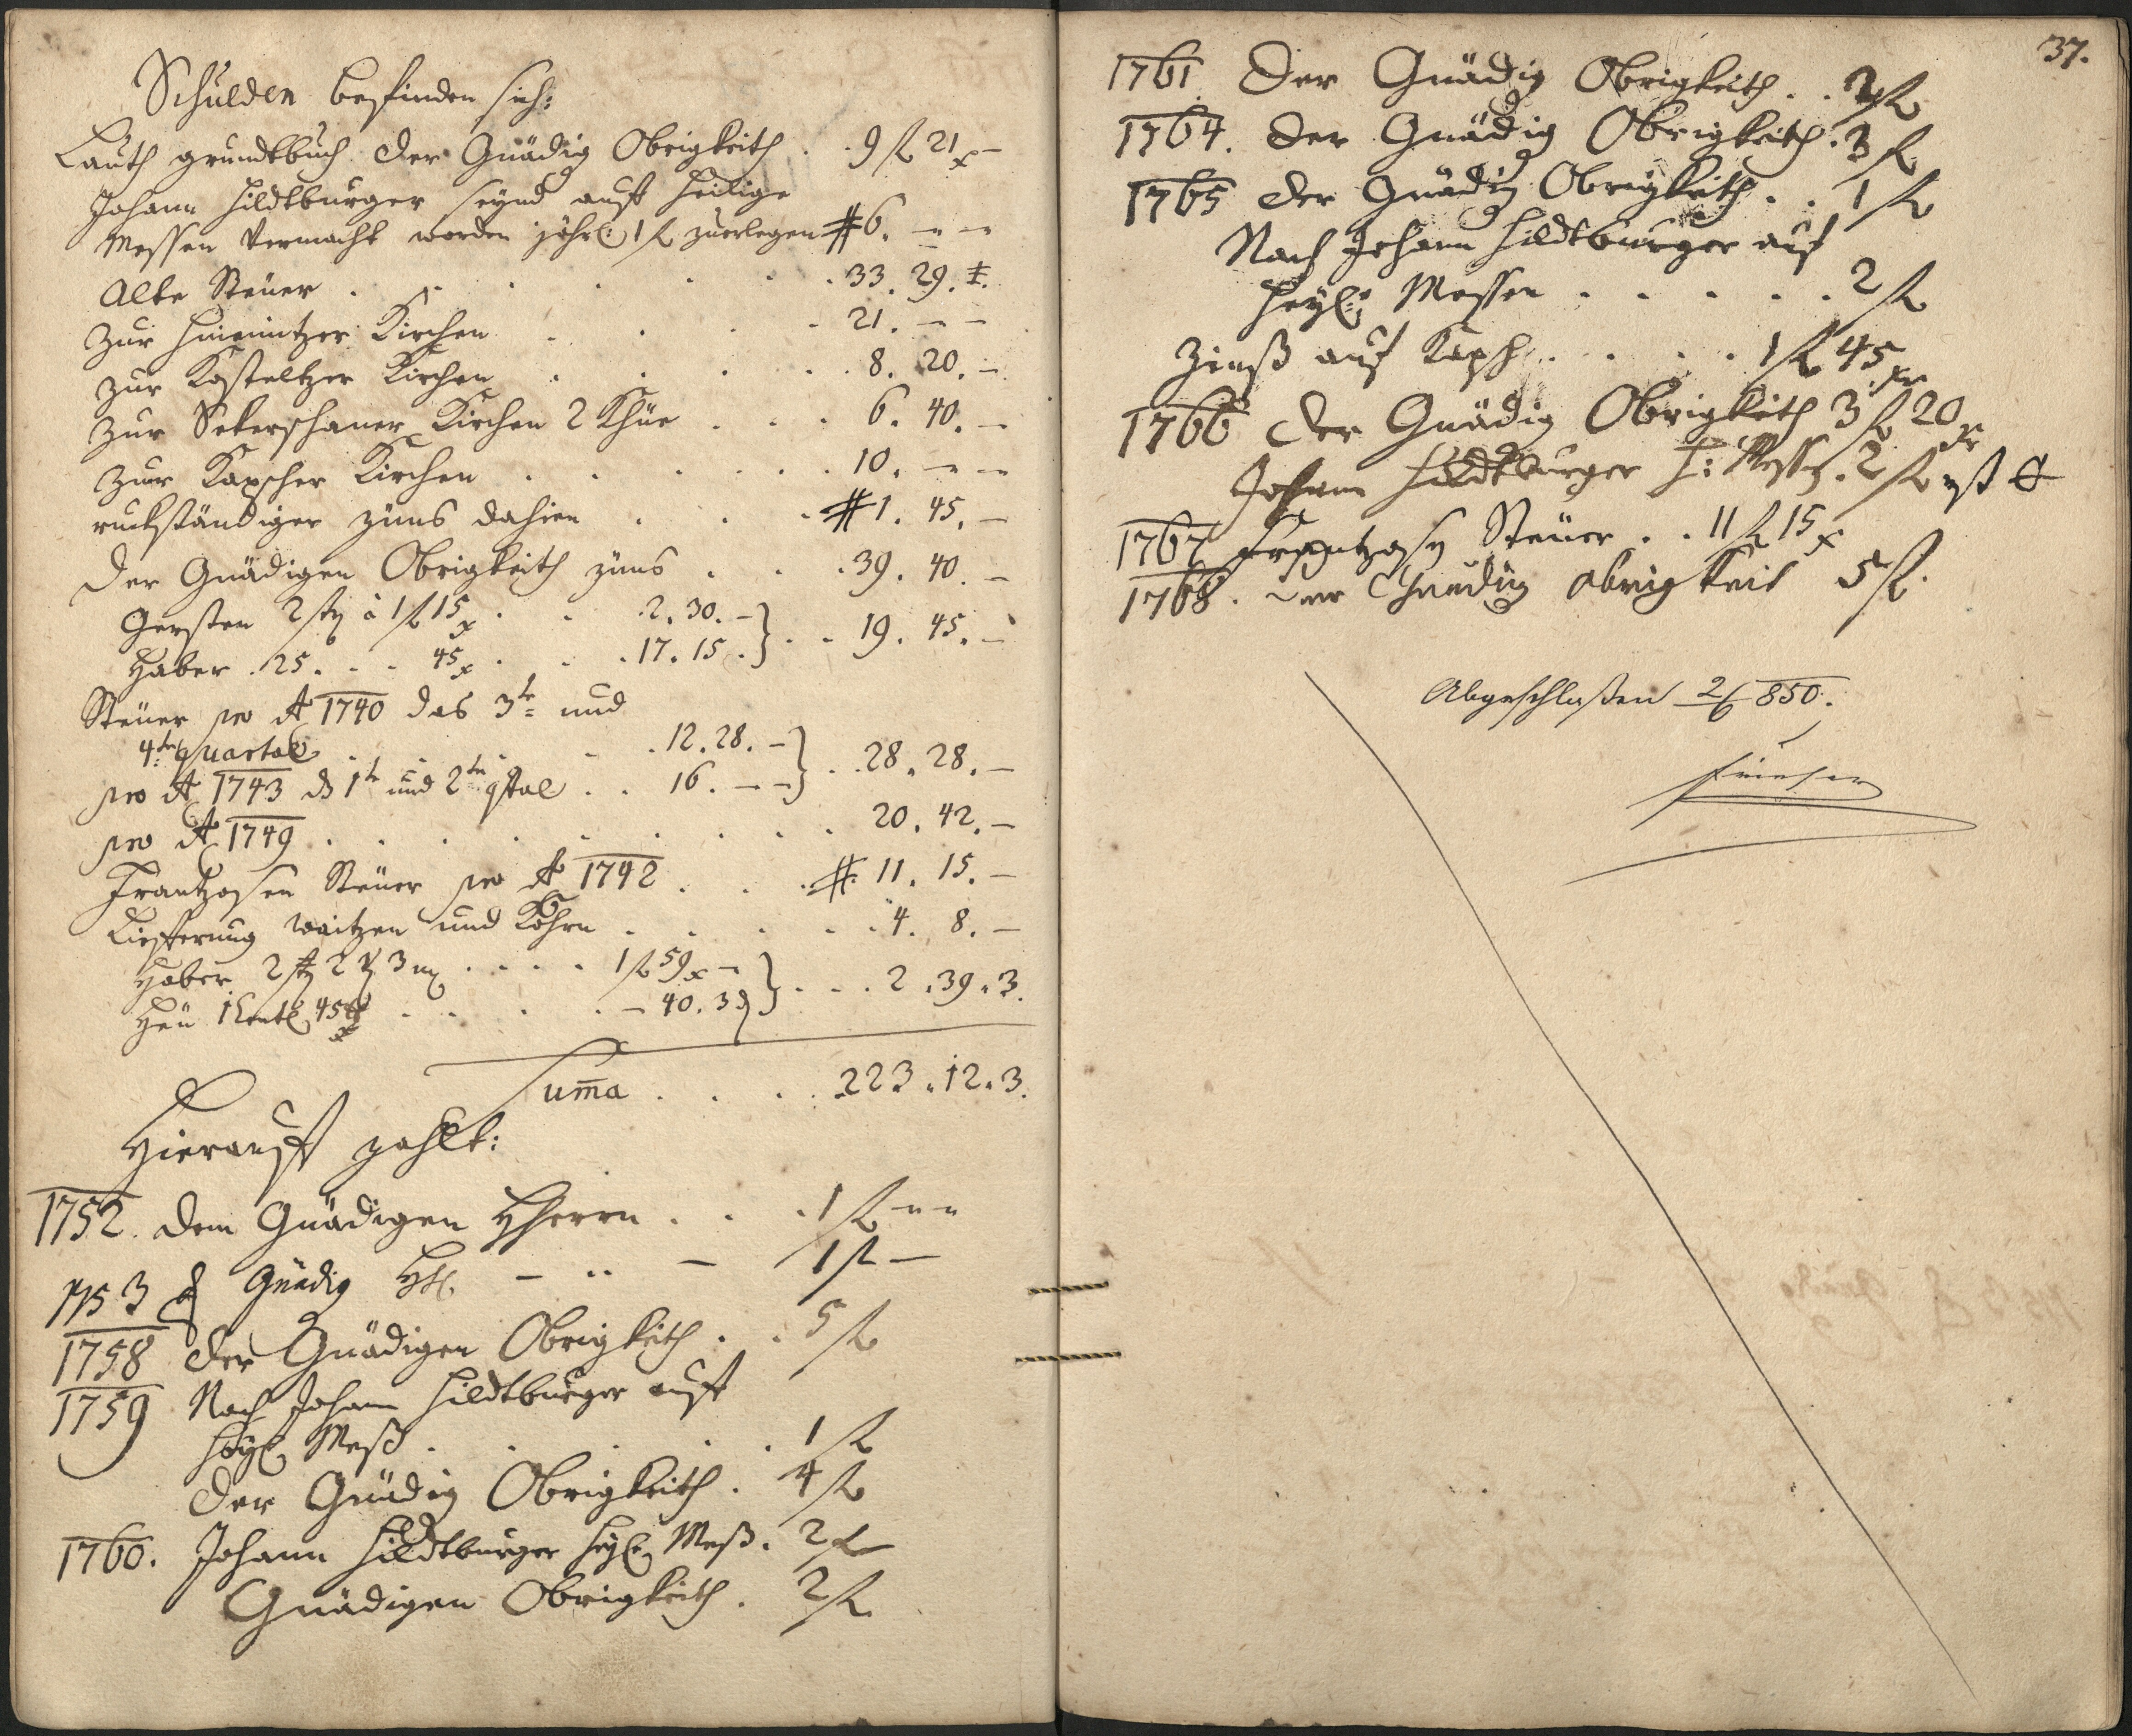 Schulden befinden sich:
Lauth grundtbuch der Gnädig Obrigkeith . . 9 fl 21 x –
Johann Hildtburger seynd auff heilige
Messen vermacht worden jährl: 1 fl zuerlegen # 6. – –
Alte Steuer . . . . . . 33. 29.
zur Kirchen . . . . 21. – –
zur Kosteltzer Kirchen . . . . 8. 20. –
zur Sekerschaner Kirchen 2 Khüe . . . 6. 40. –
zur Kapscher Kirchen . . . . . 10. – –
ruckständiger züns dahien . . . # 1. 45. –
Der Gnädigen Obrigkeith züns . . . 39. 40. –
Gersten 2 str à 1 fl 15 x . . 2. 30. – } . . 19. 45. –
Haber . 25 . . . 45 x . . . 17. 15 .
Steuer pro Ao 1740 das 3te und
4te quartal . . . . . 12. 28. – } . . 28. 28. –
pro Ao 1743 ds 1te und 2te qtal . . 16. – –
pro Ao 1749 . . . . . . . 20. 42. –
Frantzosen Steuer pro Ao 1742 . . . # 11. 15. –
Lieferung waitzen und Kohrn . . . . . 4. 8. –
Haber 2 str 2 3 . . . . 1 fl 59 x – } . . . 2. 39. 3.
Heu 1 Centl 45 . . . . . – 40. 3 d
Suma . . . . 223. 12. 3.
Hierauff zahlt:
1752. dem Gnädigen Herrn . . . 1 fl – –
1753 Gnädig – .. – 1 fl –
1758 der Gnädigen Obrigkeith . . 5 fl
1759 Nach Johann Hildtburger auff
heyl Meß . . . . . 1 fl
der Gnädig Obrigkeith . 4 fl
1760. Johann Hildtburger heyl Meß . 2 fl
Gnädigen Obrigkeith . 2 fl
37.
1761. Der Gnädig Obrigkeith . . 2 fl
1764. der Gnädig Obrigkeith . 3 fl
1765 der Gnädig Obrigkeith . . 1 fl
Nach Johann Hildtburger auf
heyl: Messen . . . . . . 2 fl
Zinß auf Kapsch . . . . . 1 fl 45 xr
1766 der Gnädig Obrigkeith 3 fl 20 xr
Johann Hildtburger h: Mess . 2 fl
1767 Frantzosn Steuer . . 11 fl 15 x
1768. der Gnedig obrigkeit 5 fl.
Abgeschloßen 2/6 850.